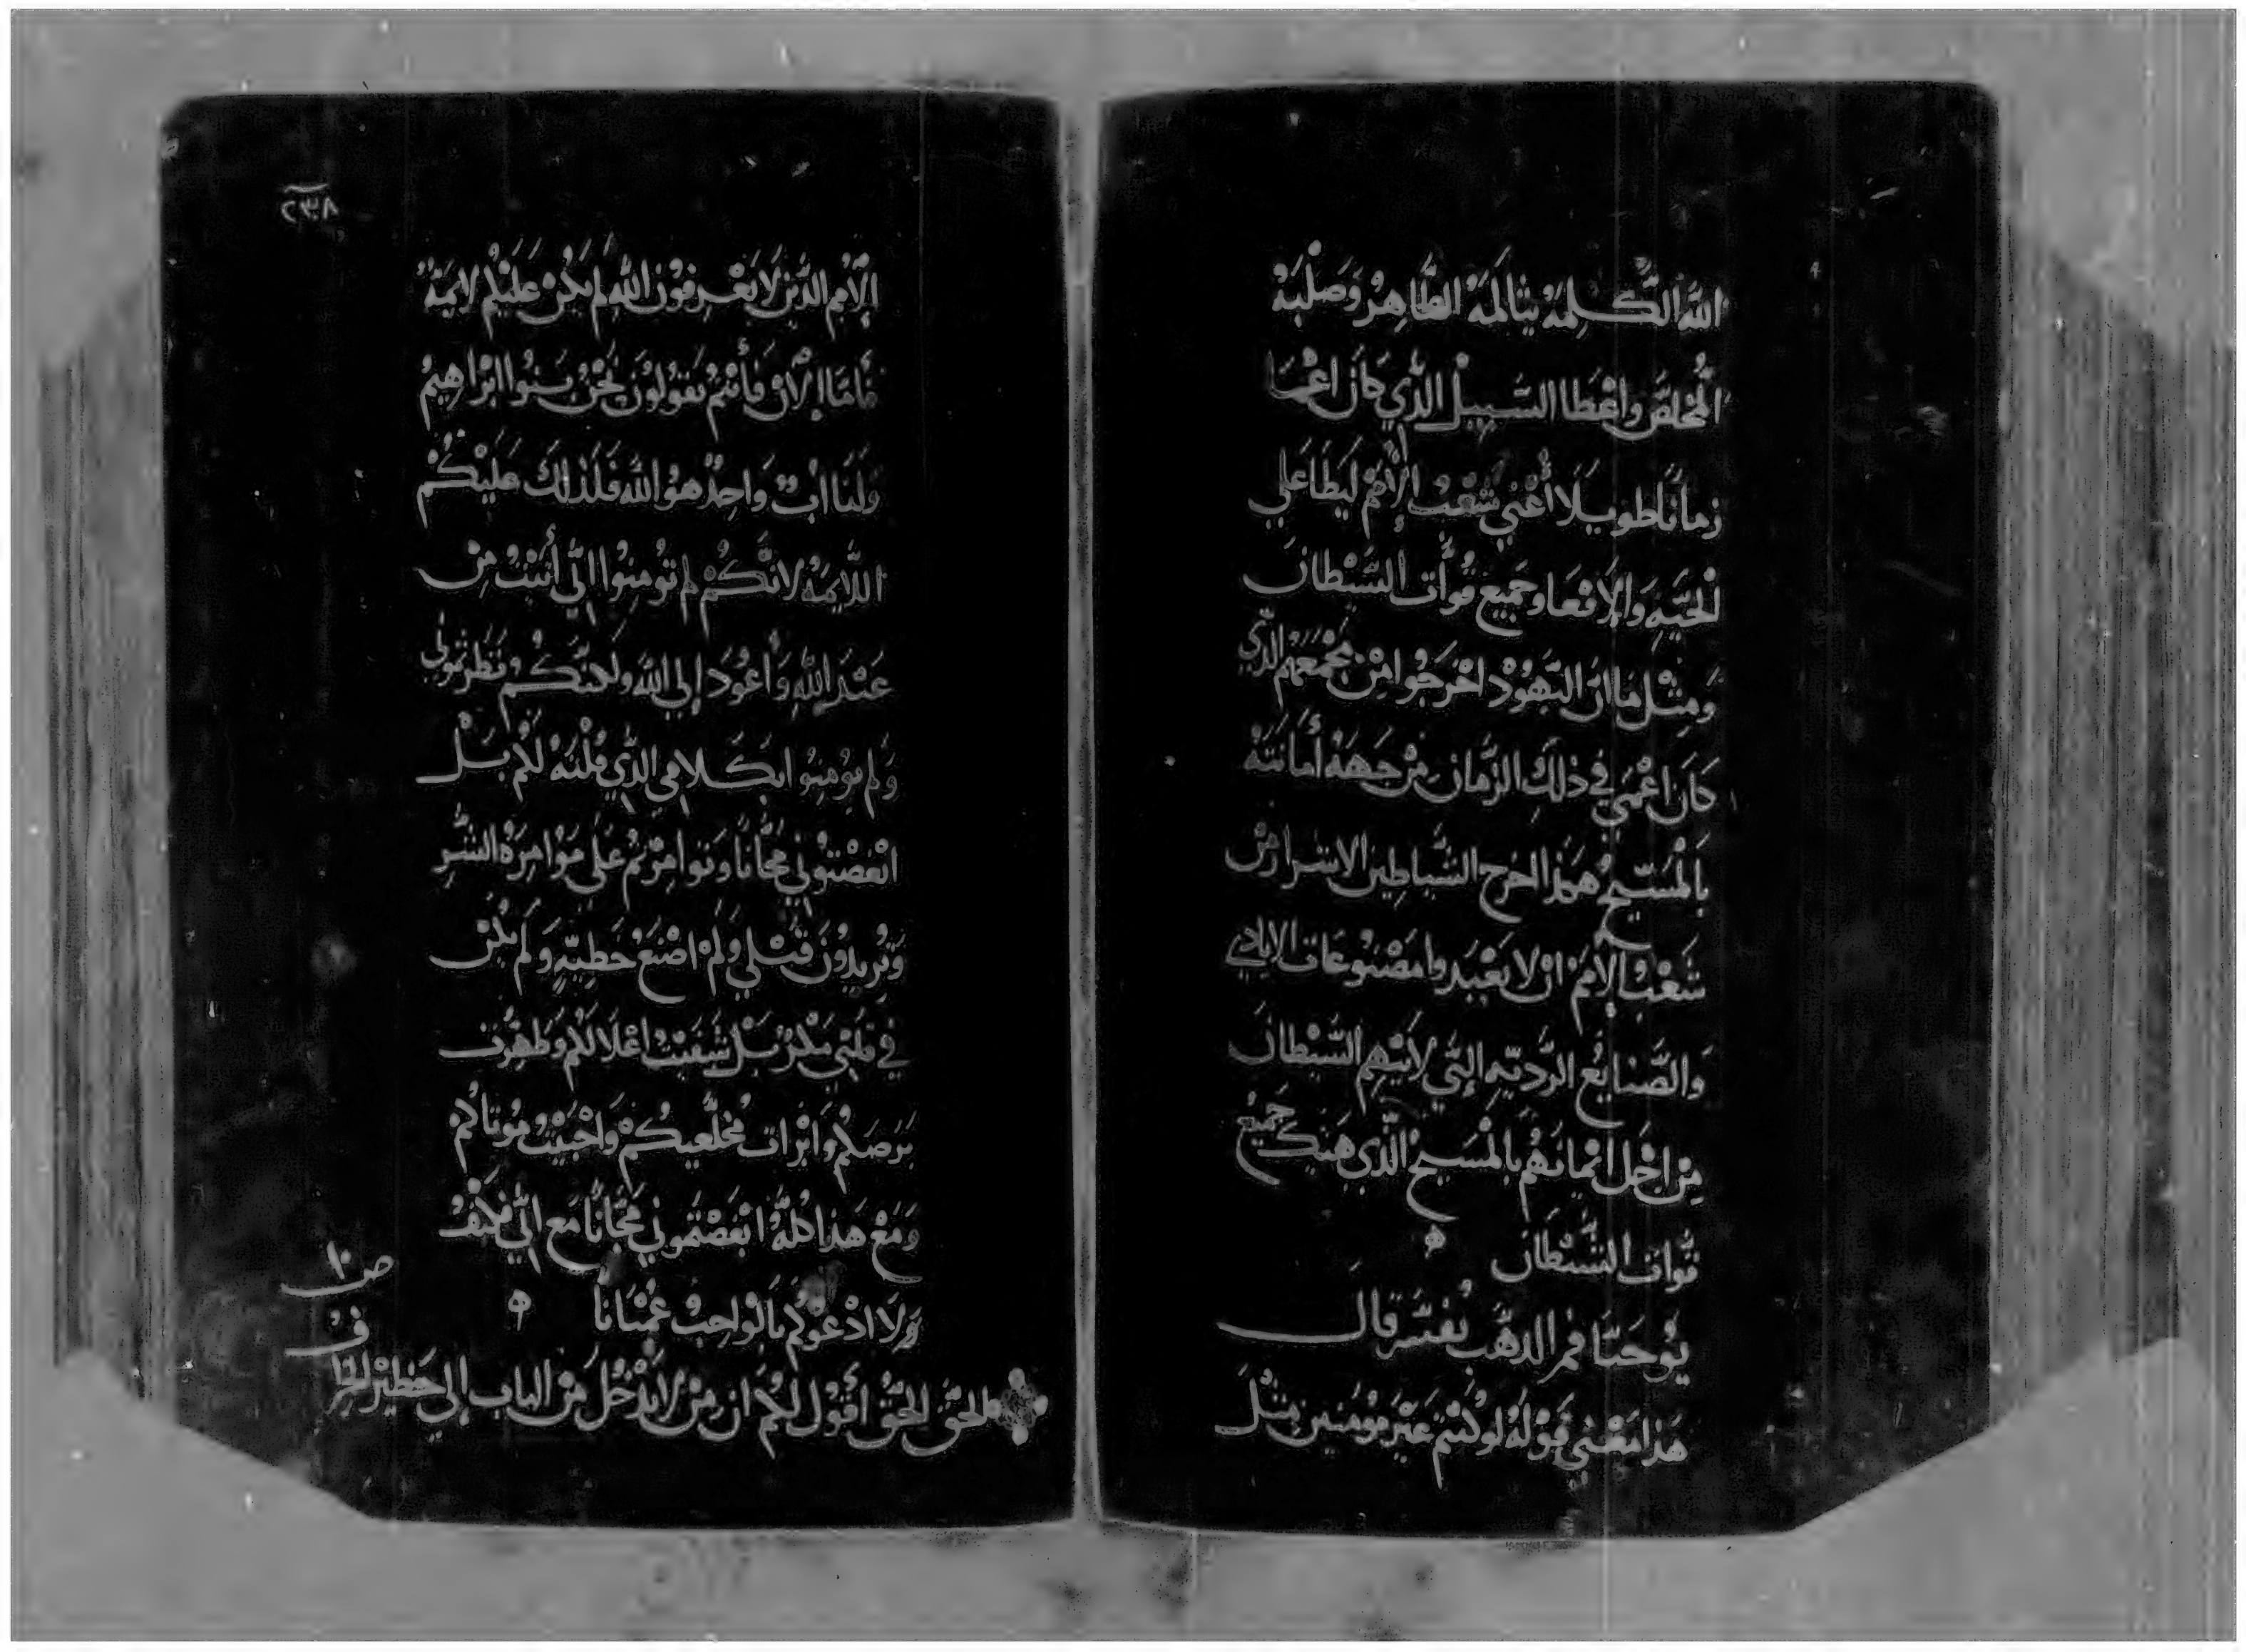 الله الكلمة بتالمه الطاهر وصلبه
المخلص واعطا السبيل الذي كان اعما
زمانًا طويلا أعني شعب الأمم ليطا علي
الحيه والافعا وجميع قوات الشيطان
ومثل ما ان اليهود اخرجوا من مجمعهم الذي
كان اعمي في ذلك الزمان من جهة أمانته
بالمسيح هكذا اخرج الشياطين الاشرار من
شعب الامم ان لا يعبدوا مصنوعات الايادي
والصنايع الرديه التي لايتهم الشيطان
من اجل ايمانهم بالمسيح الذي هتك جميع
قوات الشيطان
يوحنا فم الذهب يفسر قال
هذا معني قوله لو كنتم غير مومنين مثل
٢٣٨
الامم الذين لا يعرفون الله لم يكن عليكم لايمة
فاما الآن فأنتم تقولون نحن بنوا ابراهيم
ولنا اب واحد هو الله فلذلك عليكم
اللايمه لانكم لم تومنوا اني أتيت من
عند الله وأعود إلي الله ولكنكم نظرتموني
ولم تومنوا بكلامي الذي قلته لكم بل
ابغضتوني مجانًا وتوامرتم علي موامرة الشر
وتريدون قتلي ولم اصنع خطيه ولم يكن
في فمي مكر بل شفيت اعلالكم وطهرت
برصكم وابرات مخلعيكم واحييت موتاكم
ومع هذا كله ابغضتموني مجانًا مع اني
ولا ادعوكم بالواجب عميانا
ص ١٠
ف
الحق الحق أقول لكم ان من لا يدخل من الباب إلي حظيرة الخراف